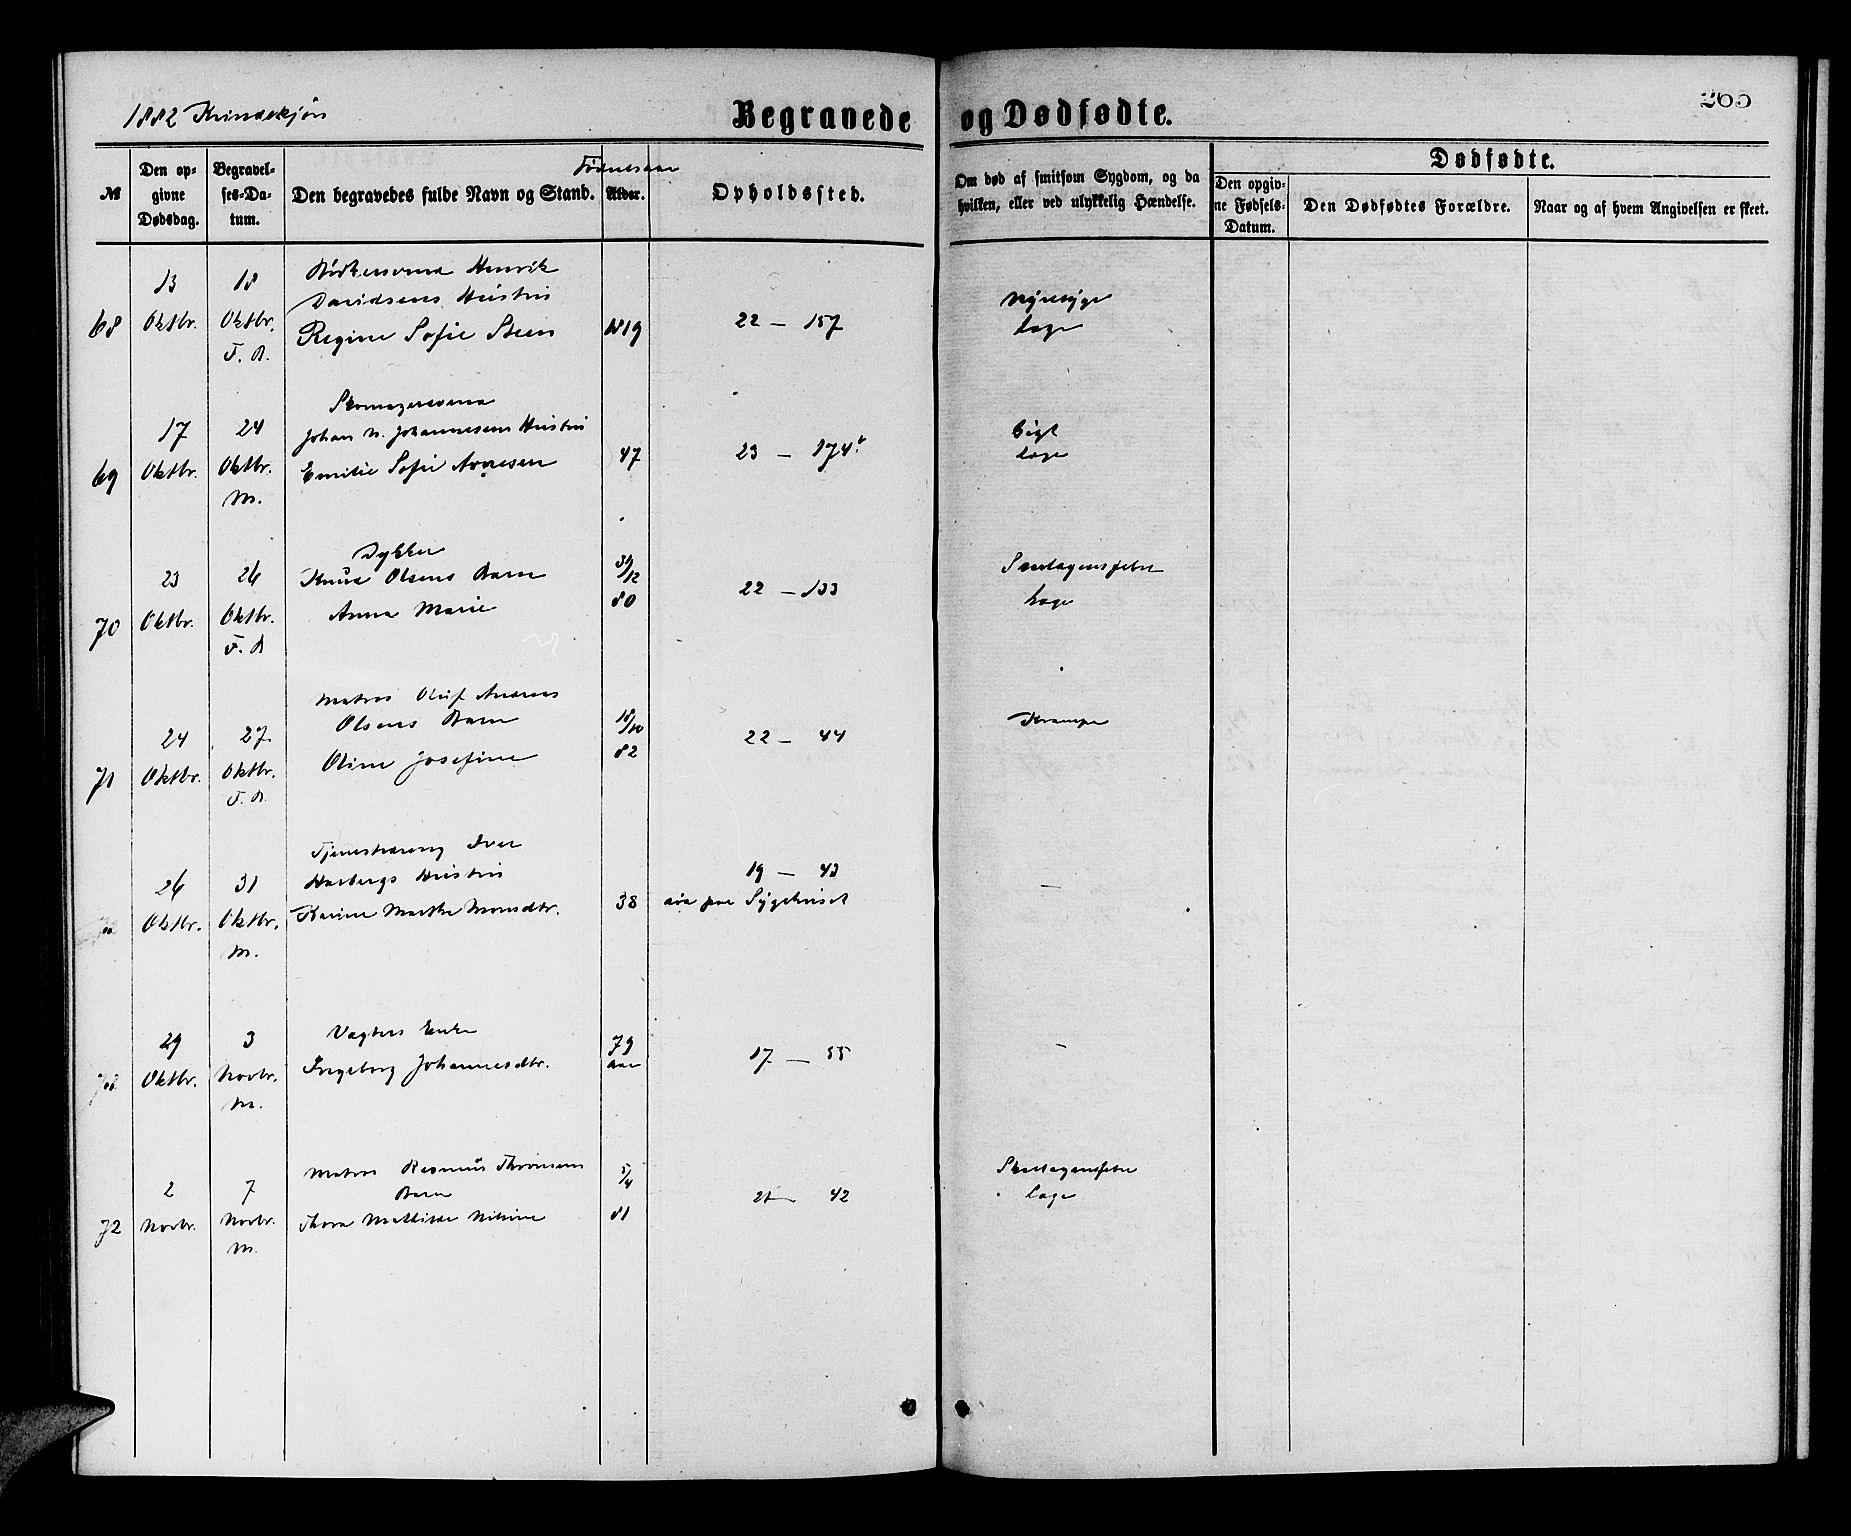 1882 Kvindekjøn
Begravede og Dødfødte.
265
№
Den opgivne Dødsdag.
Begravelses-Datum.
Den begravedes fulde Navn og Stand.
Fødselsaar
Alder.
Opholdssted.
Om død af smitsom Sygdom, og da hvilken, eller ved ulykkelig Hændelse.
Dødfødte.
Den opgivne Fødsels-Datum.
Den Dødfødtes Forældre.
Naar og af hvem Angivelsen er skeet.
68
13 Oktbr.
18 Oktbr. F. B.
Bødkersvend Henrik
Davidsens Hustru
Regine Sofie Steen
1819
22 – 157
Nyresyge
Læge
69
17 Oktbr.
24 Oktbr. M.
Skomagersvend
Johan N. Johannesens Hustru
Emilie Sofie Arnesen
47
23 – 174
Gigt
Læge
70
23 Oktbr.
26 Oktbr. F. B
Dykker
Knud Olsens Barn
Anna Marie
/12 80
22 – 133
Skarlagensfeber
Læge
71
24 Oktbr.
27 Oktbr. F. B.
Matros Oluf Andreas
Olsens Barn
Oline Josefine
18/10 82
22 – 44
Krampe
26 Oktbr.
31 Oktbr. M.
Iver
Hustru
Karine Marthe Monsdtr.
38
19 – 43
død paa Sygehuset
–
29 Oktbr.
3 Novbr. M.
Vægters Enke
Ingeborg Johannesdtr.
79 aar
17 – 55
–
72
2 Novbr.
7 Novbr. M.
Matros Rasmus
Barn
Thora Mathilde
5/4 81
21 – 42
Skarlagensfeber
Læge